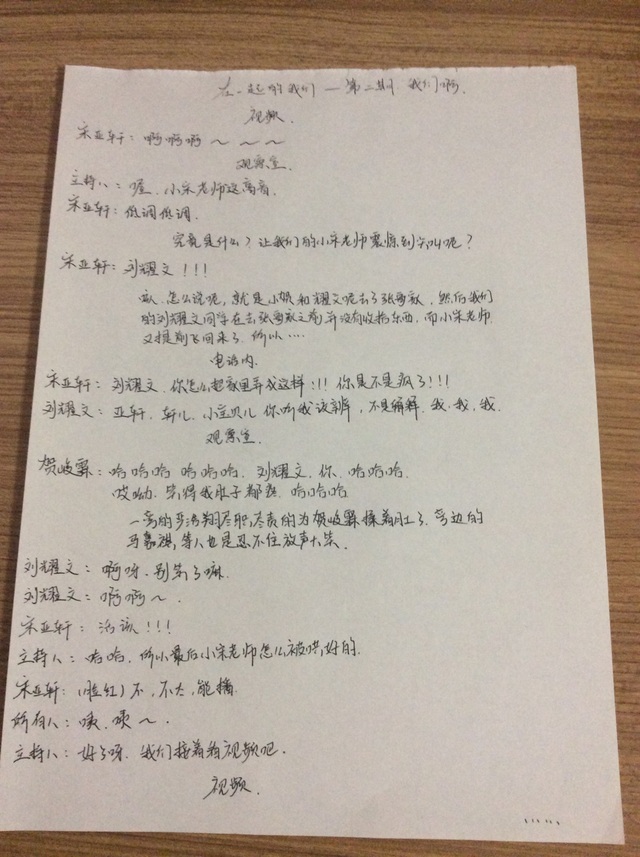 在一起的我们—第二期 我们啊.
视频.
宋亚轩: 啊啊啊~ ~ ~
观察室.
主持人: 喔、小宋老师这高音.
宋亚轩: 低调低调.
究竟是什么? 让我们的小宋老师震惊到尖叫呢?
宋亚轩: 刘耀文!!!
怎么说呢, 就是小贺和耀文呢去了张哥家, 然后我们
的刘耀文同学在去张哥家之前并没有收拾东西, 而小宋老师
又提前飞回来了. 所以····
电话内.
宋亚轩: 刘耀文. 你怎么把家里弄成这样!!! 你是不是疯了!!!
刘耀文: 亚轩、轩儿、小宝贝儿 你听我说辩, 不是解释. 我、我、我.
观察室.
贺峻霖: 哈哈哈 哈哈哈. 刘耀文. 你. 哈哈哈.
哎呦. 笑得我肚子都 哈哈哈
一旁的严浩翔尽职尽责的为贺峻霖揉着肚子. 旁边的
马嘉祺, 等人也是忍不住放声大笑.
刘耀文: 啊呀. 别笑了嘛.
刘耀文: 啊啊~.
宋亚轩: 活该!!!
主持人: 哈哈. 所以最后小宋老师怎么被哄好的.
宋亚轩: (脸红) 不, 不太, 能播.
所有人: 咦、咦~.
主持人: 好了呀. 我们接着看视频吧.
视频.